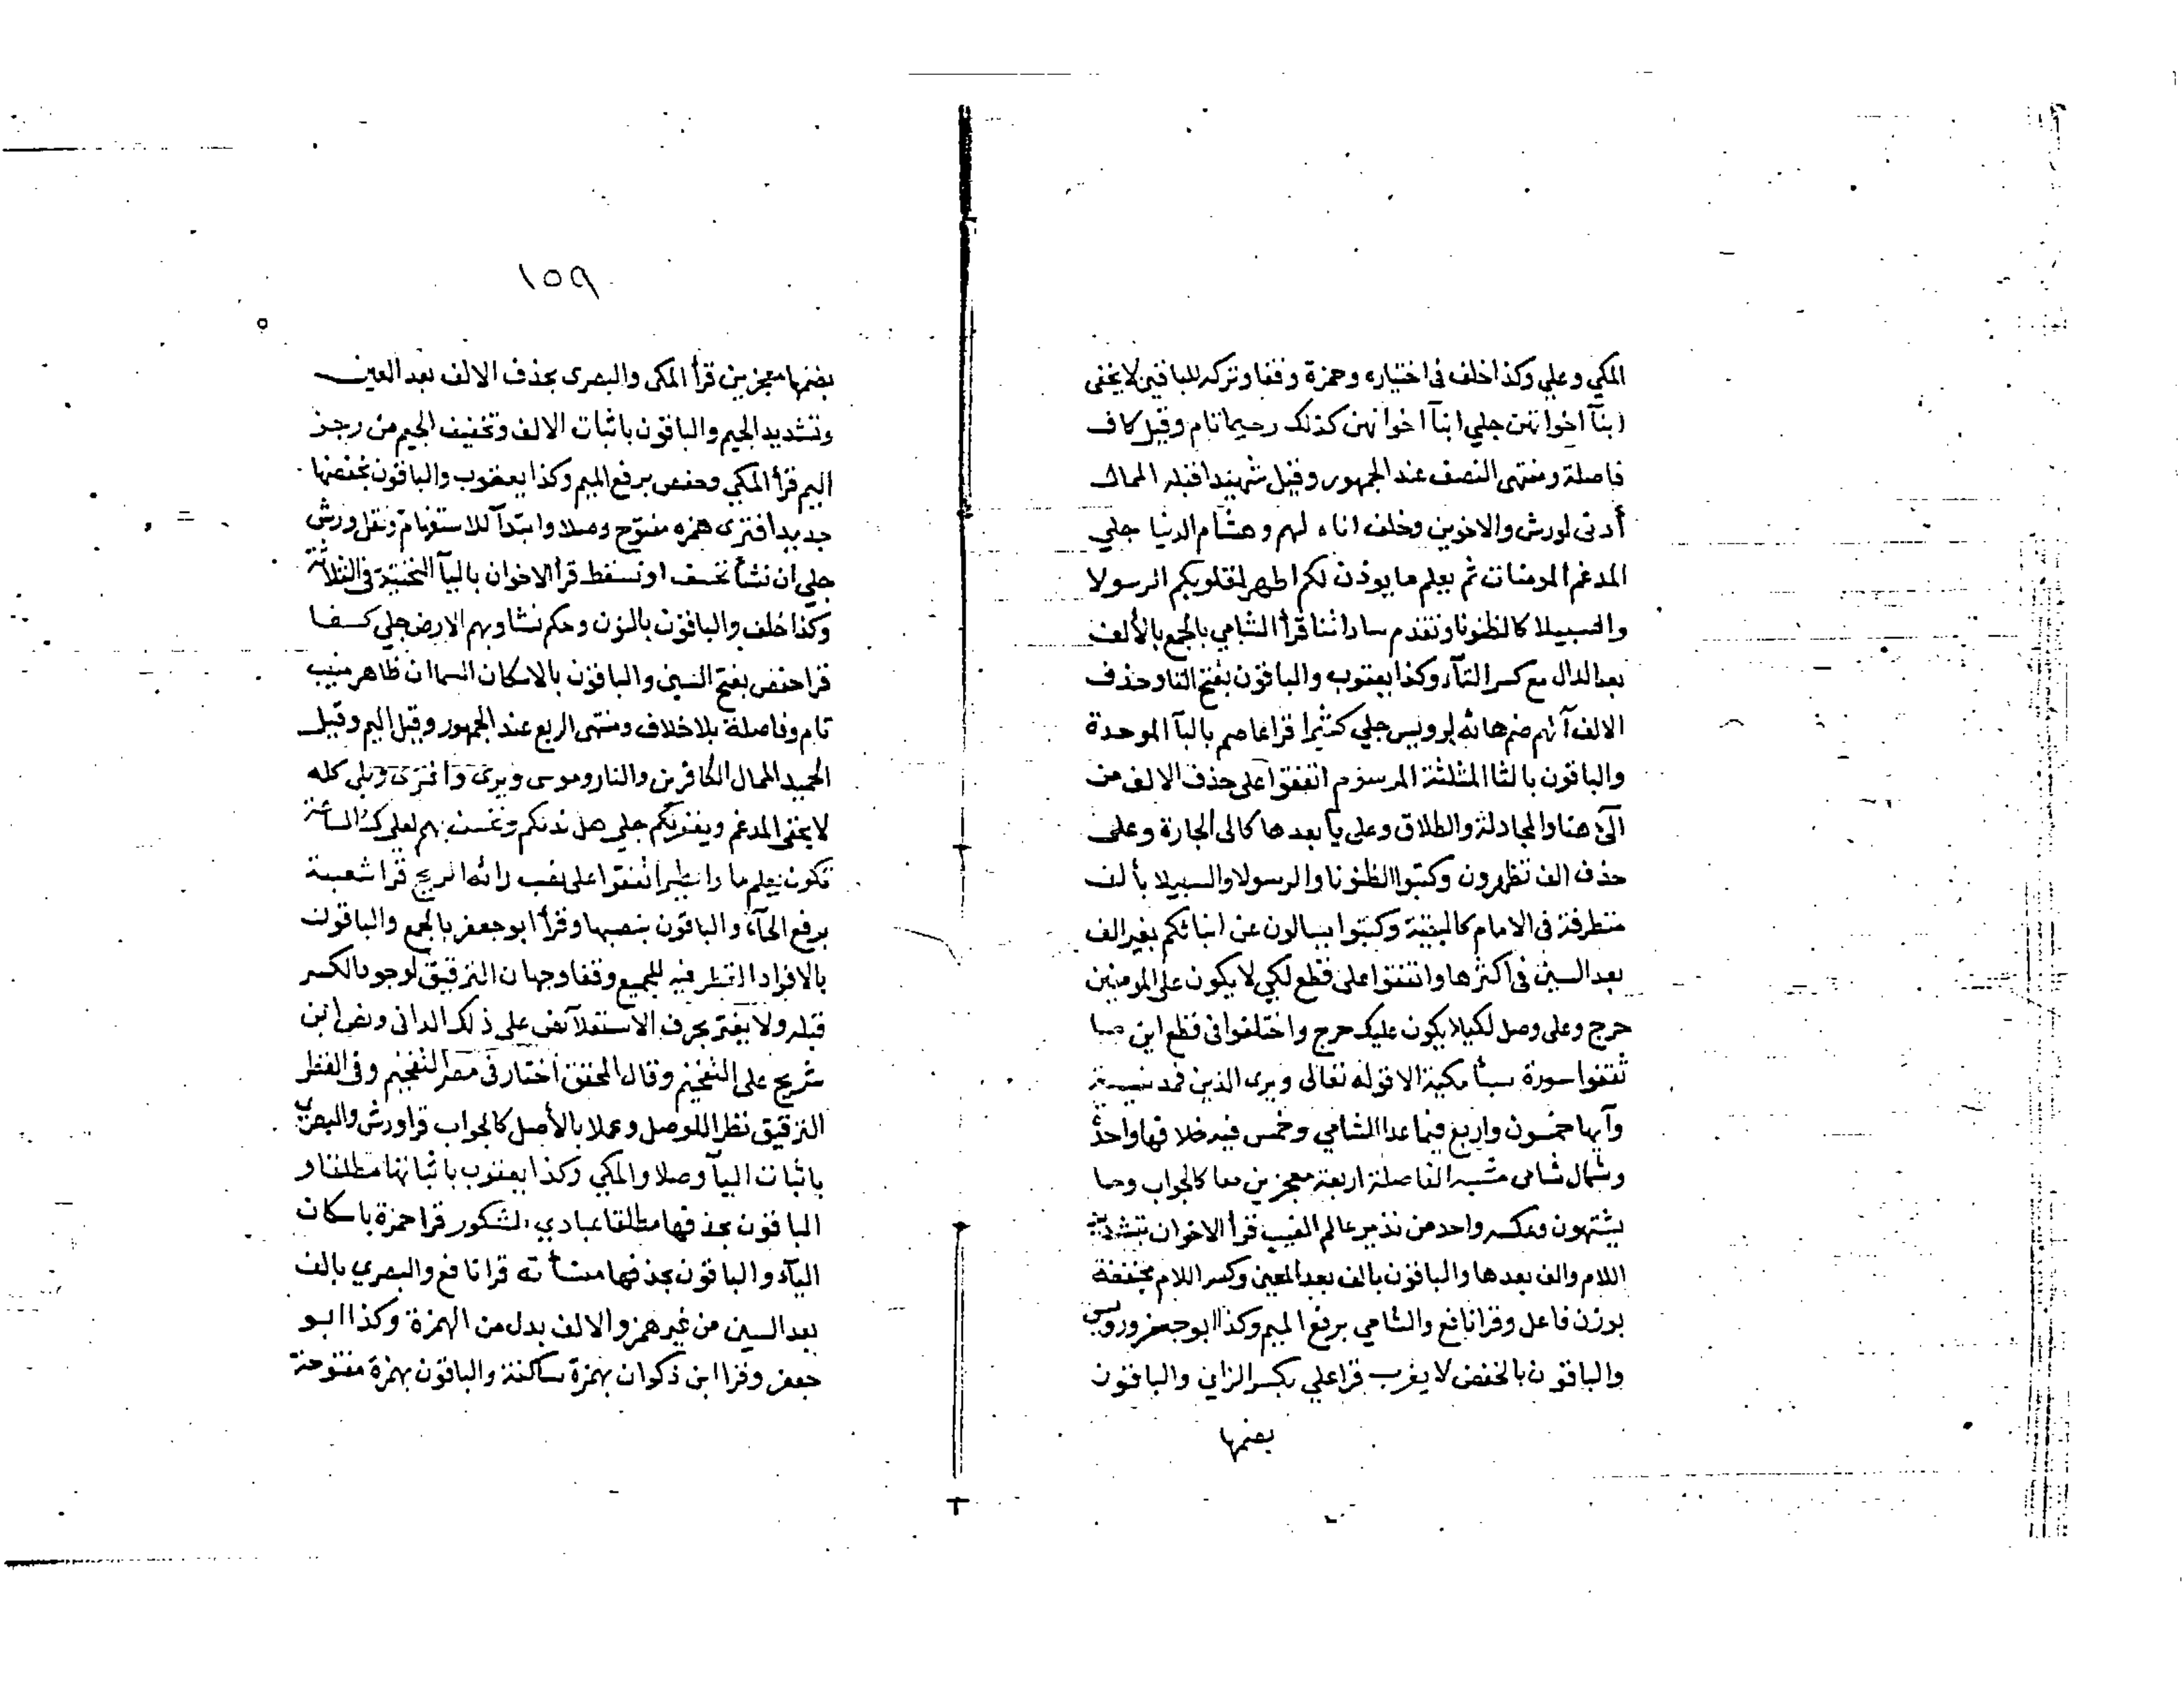 المكي وعلي وكذا خلف في اختياره وحمزة وقفا وتركه للباقين لا يخفى
ابنآ اخواتهن جلي ابنآ اخوانهن كذلك رحيما تام وقيل كاف
فاصلة ومنتهى النصف عند الجمهور وقيل شهيدا قبله الممال
أدنى لورش والاخوين وخلف اناه لهم وهشام الدنيا جلي
المدغم المومنات ثم يعلم ما يوذن لكم اطهر لقلوبكم الرسولا
والسبيلا كالظنونا وتقدم ساداتنا قرأ الشامي بالجمع بالألف
بعد الدال مع كسر التآء وكذا يعقوب والباقون بفتح التا وحذف
الالف آتهم ضم هائه لرويس جلي كثيرا قرا عاصم بالبآ الموحدة
والباقون بالثا المثلثة المرسوم اتفقوا على حذف الالف من
آلئ هنا والمجادلة والطلاق وعلى يا بعدها كالى الجارة وعلى
حذف الف تظهرون وكتبوا الظنونا والرسولا والسبيلا بألف
متطرفة في الامام كالبقية وكتبوا يسالون عن انبائكم بغير الف
بعد السين في اكثرها واتفقوا على قطع لكي لا يكون على المومنين
حرج وعلى وصل لكيلا يكون عليك حرج واختلفوا في قطع اين ما
ثقفوا سورة سبأ مكية الا قوله تعالى ويرى الذين فمدنية
وآيها خمسون واربع فيما عدا الشامي وخمس فيه خلافها واحد
وشمال شامى مشبه الفاصلة اربعة معجزين معا كالجواب وما
يشتهون وعكسه واحد من نذير عالم الغيب قرأ الاخوان بتشديد
اللام والف بعدها والباقون بالف بعد العين وكسر اللام مخففة
بوزن فاعل وقرا نافع والشامي برفع الميم وكذا ابو جعفر ورويس
والباقون بالخفض لا يعزب قرا علي بكسر الزاي والباقون
بضمها
١٥٩
بضمها معجزين قرأ المكى والبصرى بحذف الالف بعد العين
وتشديد الجيم والباقون باثبات الالف وتخفيف الجيم من رجز
اليم قرأ المكي وحفص برفع الميم وكذا يعقوب والباقون بخفضها
جديد افترى همزه مفتوح وصلا وابتدآ للاستفهام ونقل ورش
جلي ان نشأ نخسف او نسقط قرأ الاخوان باليآ التحتية في الثلاثة
وكذا خلف والباقون بالنون وحكم نشا وبهم الارض جلي كسفا
قرا حفص بفتح السين والباقون بالاسكان السما ان ظاهر منيب
تام وفاصلة بلا خلاف ومنتهى الربع عند الجمهور وقيل اليم وقيل
الحميد الممال الكافرين والنار وموسى ويرى وافترى وبلى كله
لا يخفى المدغم ويغفر لكم جلي هل ندلكم ونخسف بهم لعلي ك الساعة
تكون يعلم ما والطير اتفقوا على نصب رائه الريح قرا شعبة
برفع الحآء والباقون بنصبها وقرأ ابو جعفر بالجمع والباقون
بالافراد القطر فيه للجميع وقفا وجهان الترقيق لوجود الكسر
قبله ولا يعتبر بحرف الاستعلآ نص على ذلك الدانى ونص ابن
شريح على التفخيم وقال المحقق اختار في مصر التفخيم وفى القطر
الترقيق نظرا للوصل وعملا بالأصل كالجواب قرا ورش والبصرى
باثبات اليآ وصلا والمكي وكذا يعقوب باثباتها مطلقا و
الباقون بحذفها مطلقا عبادي الشكور قرا حمزة باسكان
اليآء والباقون بحذفها منسأته قرا نافع والبصري بالف
بعد السين من غير همز والالف بدل من الهمزة وكذا ابو
جعفر وقرا ابن ذكوان بهمزة ساكنة والباقون بهمزة مفتوحة